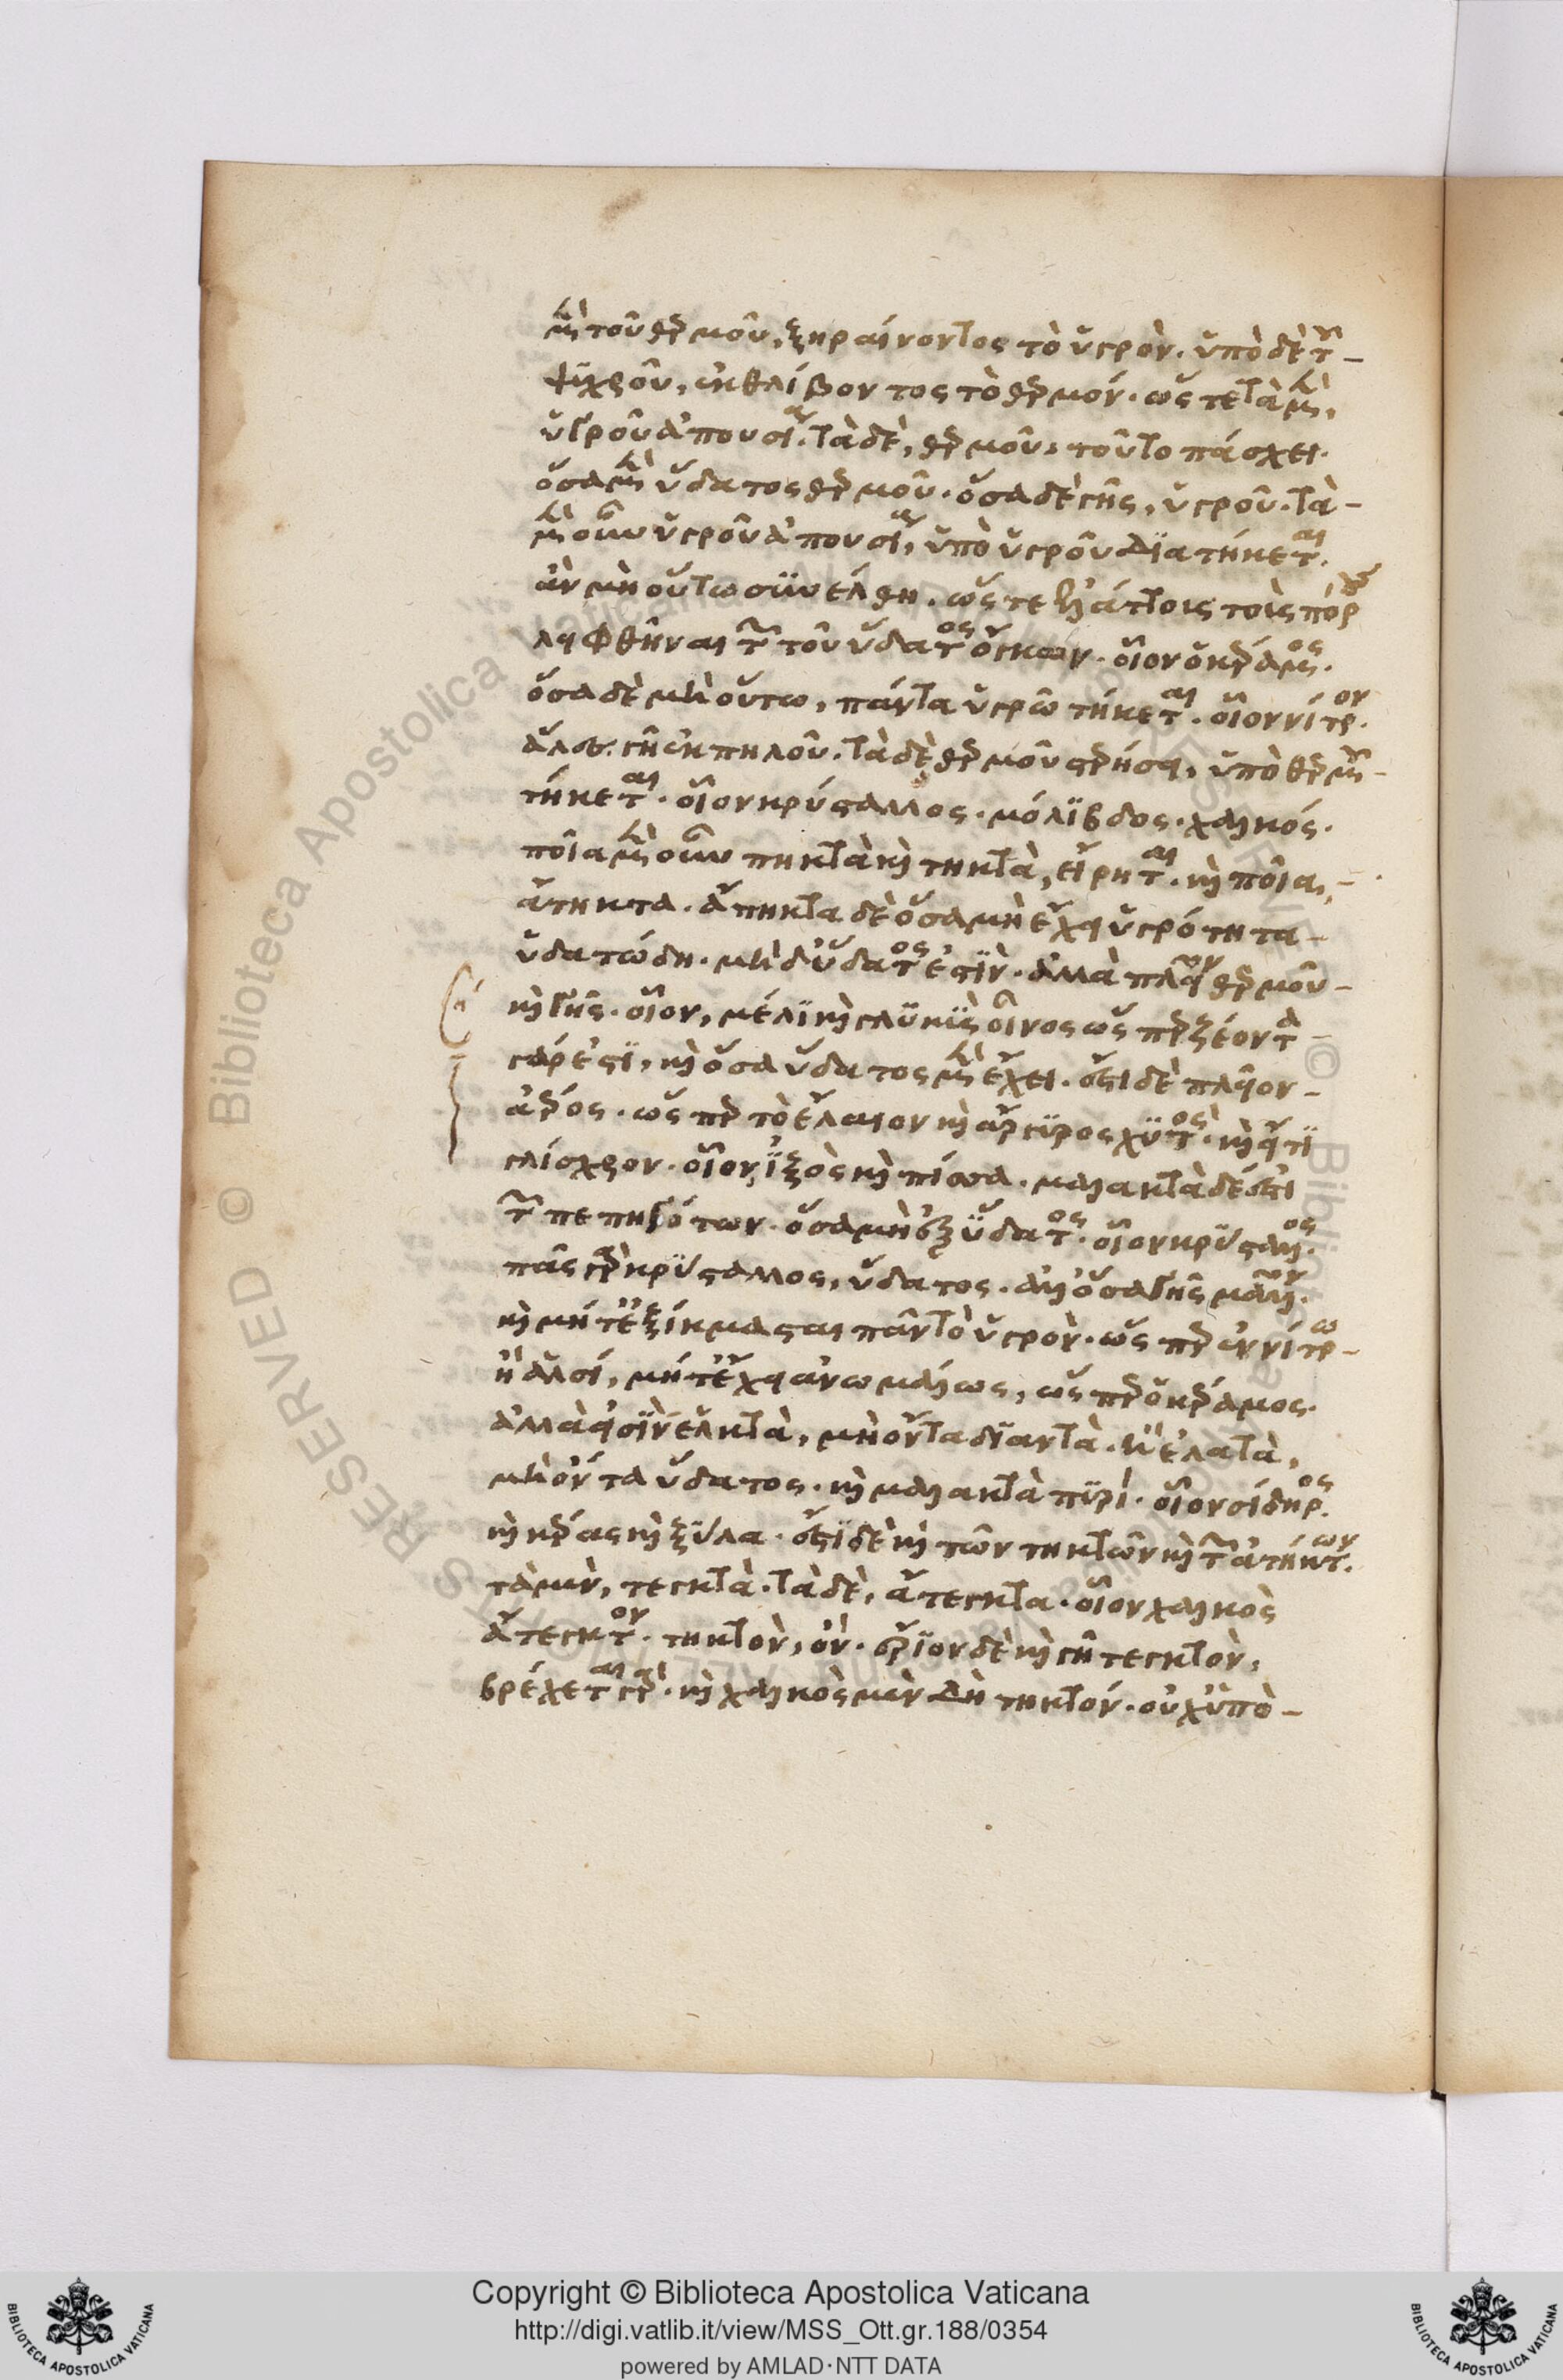 μὲν τοῦ θερμοῦ, ξηραίνοντος τὸ ὑγρόν. ὑπὸ δὲ τοῦ
ψυχροῦ, ἐκθλίβοντος τὸ θερμόν. ὥστε τὰ μὲν,
ὑγροῦ ἀπουσία. τὰ δὲ, θερμοῦ, τοῦτο πάσχει.
ὅσα μὲν ὕδατος θερμοῦ. ὅσα δὲ γῆς, ὑγροῦ. τὰ
μὲν οὖν ὑγροῦ ἀπουσία, ὑπὸ ὑγροῦ διατήκεται.
ἂν μὴ οὕτω συνέλθη. ὥστε ἐλάττοις τοὺς πόρους
λειφθῆναι τῶν τοῦ ὕδατος ὄγκων. οἷον ὁ κέραμος.
ὅσα δὲ μὴ οὕτω, πάντα ὑγρῶ τήκεται. οἷον νίτρον.
ἅλες. γῆ ἐκ πηλοῦ. τὰ δὲ θερμοῦ στερήσει, ὑπὸ θερμοῦ
τήκεται. οἷον κρύσταλλος. μόλιβδος. χαλκός.
ποῖα μὲν οὖν πηκτὰ καὶ τηκτὰ, εἴρηται. καὶ ποῖα,
ἄτηκτα. ἄπηκτα δὲ ὅσα μὴ ἔχει ὑγρότητα
ὑδατώδη. μὴ δ' ὕδατός ἐστιν. ἀλλὰ πλεῖον θερμοῦ
καὶ γῆς. οἷον, μέλι καὶ γλυκὺς οἶνος ὥσπερ ζέοντα
γάρ ἐστι, καὶ ὅσα ὕδατος μὲν ἔχει. ἔστι δὲ πλεῖον
ἀέρος. ὥσπερ τὸ ἔλαιον καὶ ἄργυρος χυτός. καὶ εἴ τι
γλίσχρον. οἷον, ἰξὸς καὶ πίσσα. μαλακτὰ δέ ἐστι
τῶν πεπηγότων. ὅσα μὴ ἐξ ὕδατος. οἷον κρύσταλλος.
πᾶς γὰρ κρύσταλλος, ὕδατος. ἀλλ' ὅσα γῆς μᾶλλον.
καὶ μήτ' ἐξίκμασται πᾶν τὸ ὑγρόν. ὥσπερ ἐν νίτρω
ἢ ἁλσί, μήτ' ἔχει ἀνωμάλως, ὥσπερ ὁ κέραμος.
ἀλλὰ εἰσὶν ἑλκτὰ, μὴ ὄντα διαντά. ἢ ἐλατὰ,
μὴ ὄντα ὕδατος. καὶ μαλακτὰ πυρί. οἷον σίδηρος.
καὶ κέρας καὶ ξύλα. ἔστι δὲ καὶ τῶν τηκτῶν καὶ τῶν ἀτήκτων.
τὰ μὲν, τεγκτά. τὰ δὲ, ἄτεγκτα. οἷον χαλκὸς
ἄτεγκτον. τηκτὸν, ὄν. ἔριον δὲ καὶ γῆ τεγκτὸν,
βρέχεται γάρ. καὶ χαλκὸς μὲν δὴ τηκτόν. οὐχ ὑπὸ
Biblioteca Apostolica Vaticana
ALL RIGHTS RESERVED © Biblioteca Apostolica Vaticana
Copyright © Biblioteca Apostolica Vaticana
http://digi.vatlib.it/view/MSS_Ott.gr.188/0354
powered by AMLAD·NTT DATA
BIBLIOTECA APOSTOLICA VATICANA
BIBLIOTECA APOSTOLICA VATICANA